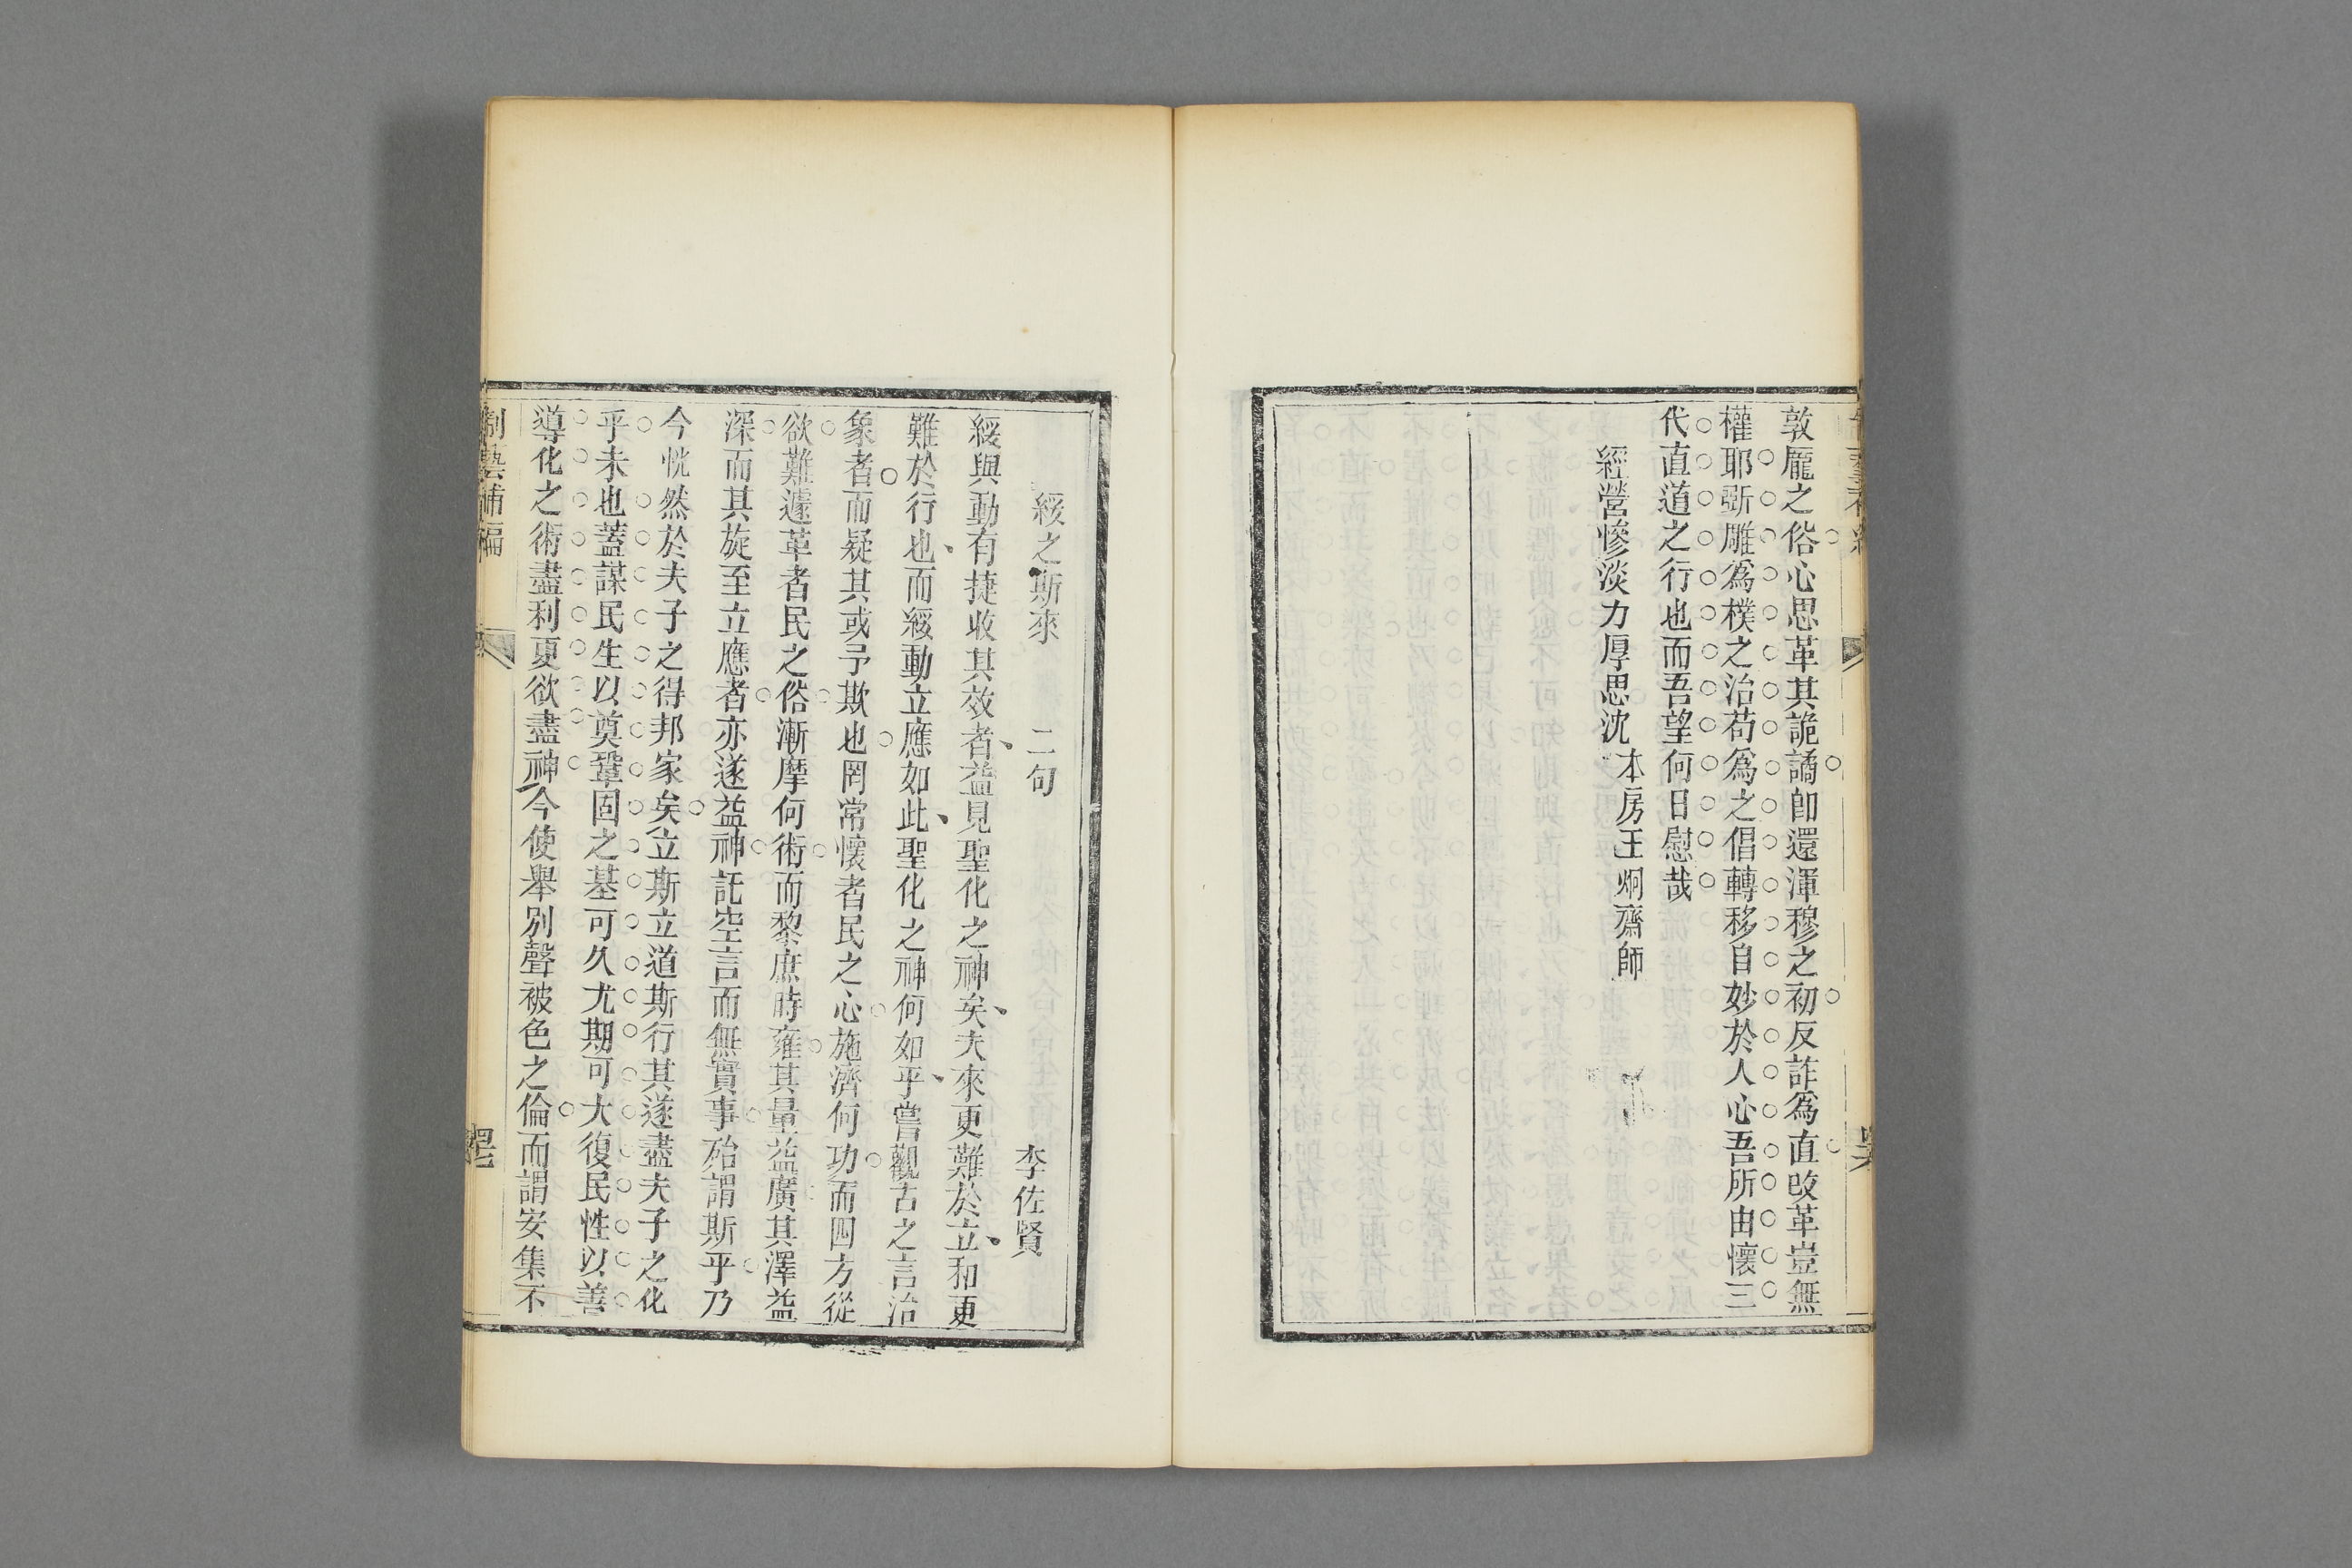 敦龎之俗心思革其詭譎卽還渾穆之初反詐爲直攺革豈無
權耶斲雕爲樸之治苟爲之倡轉移自妙於人心吾所由懷三
代直道之行也而吾望何日慰哉
經營慘淡力厚思沈
本房王炯齋師
綏之斯來 二句 李佐賢
綏與動有捷收其效者益見聖化之神矣夫來更難於立和更
難於行也而綏動立應如此聖化之神何如乎嘗觀古之言治
象者而疑其或予欺也罔常懷者民之心施濟何功而四方從
欲難遽革者民之俗漸摩何術而黎庶時雍其量益廣其澤益
深而其旋至立應者亦遂益神託空言而無實事殆謂斯乎乃
今恍然於夫子之得邦家矣立斯立道斯行其遂盡夫子之化
乎未也蓋謀民生以奠鞏固之基可久尤期可大復民性以善
導化之術盡利更欲盡神今使舉別聲被色之倫而謂安集不
制藝補編